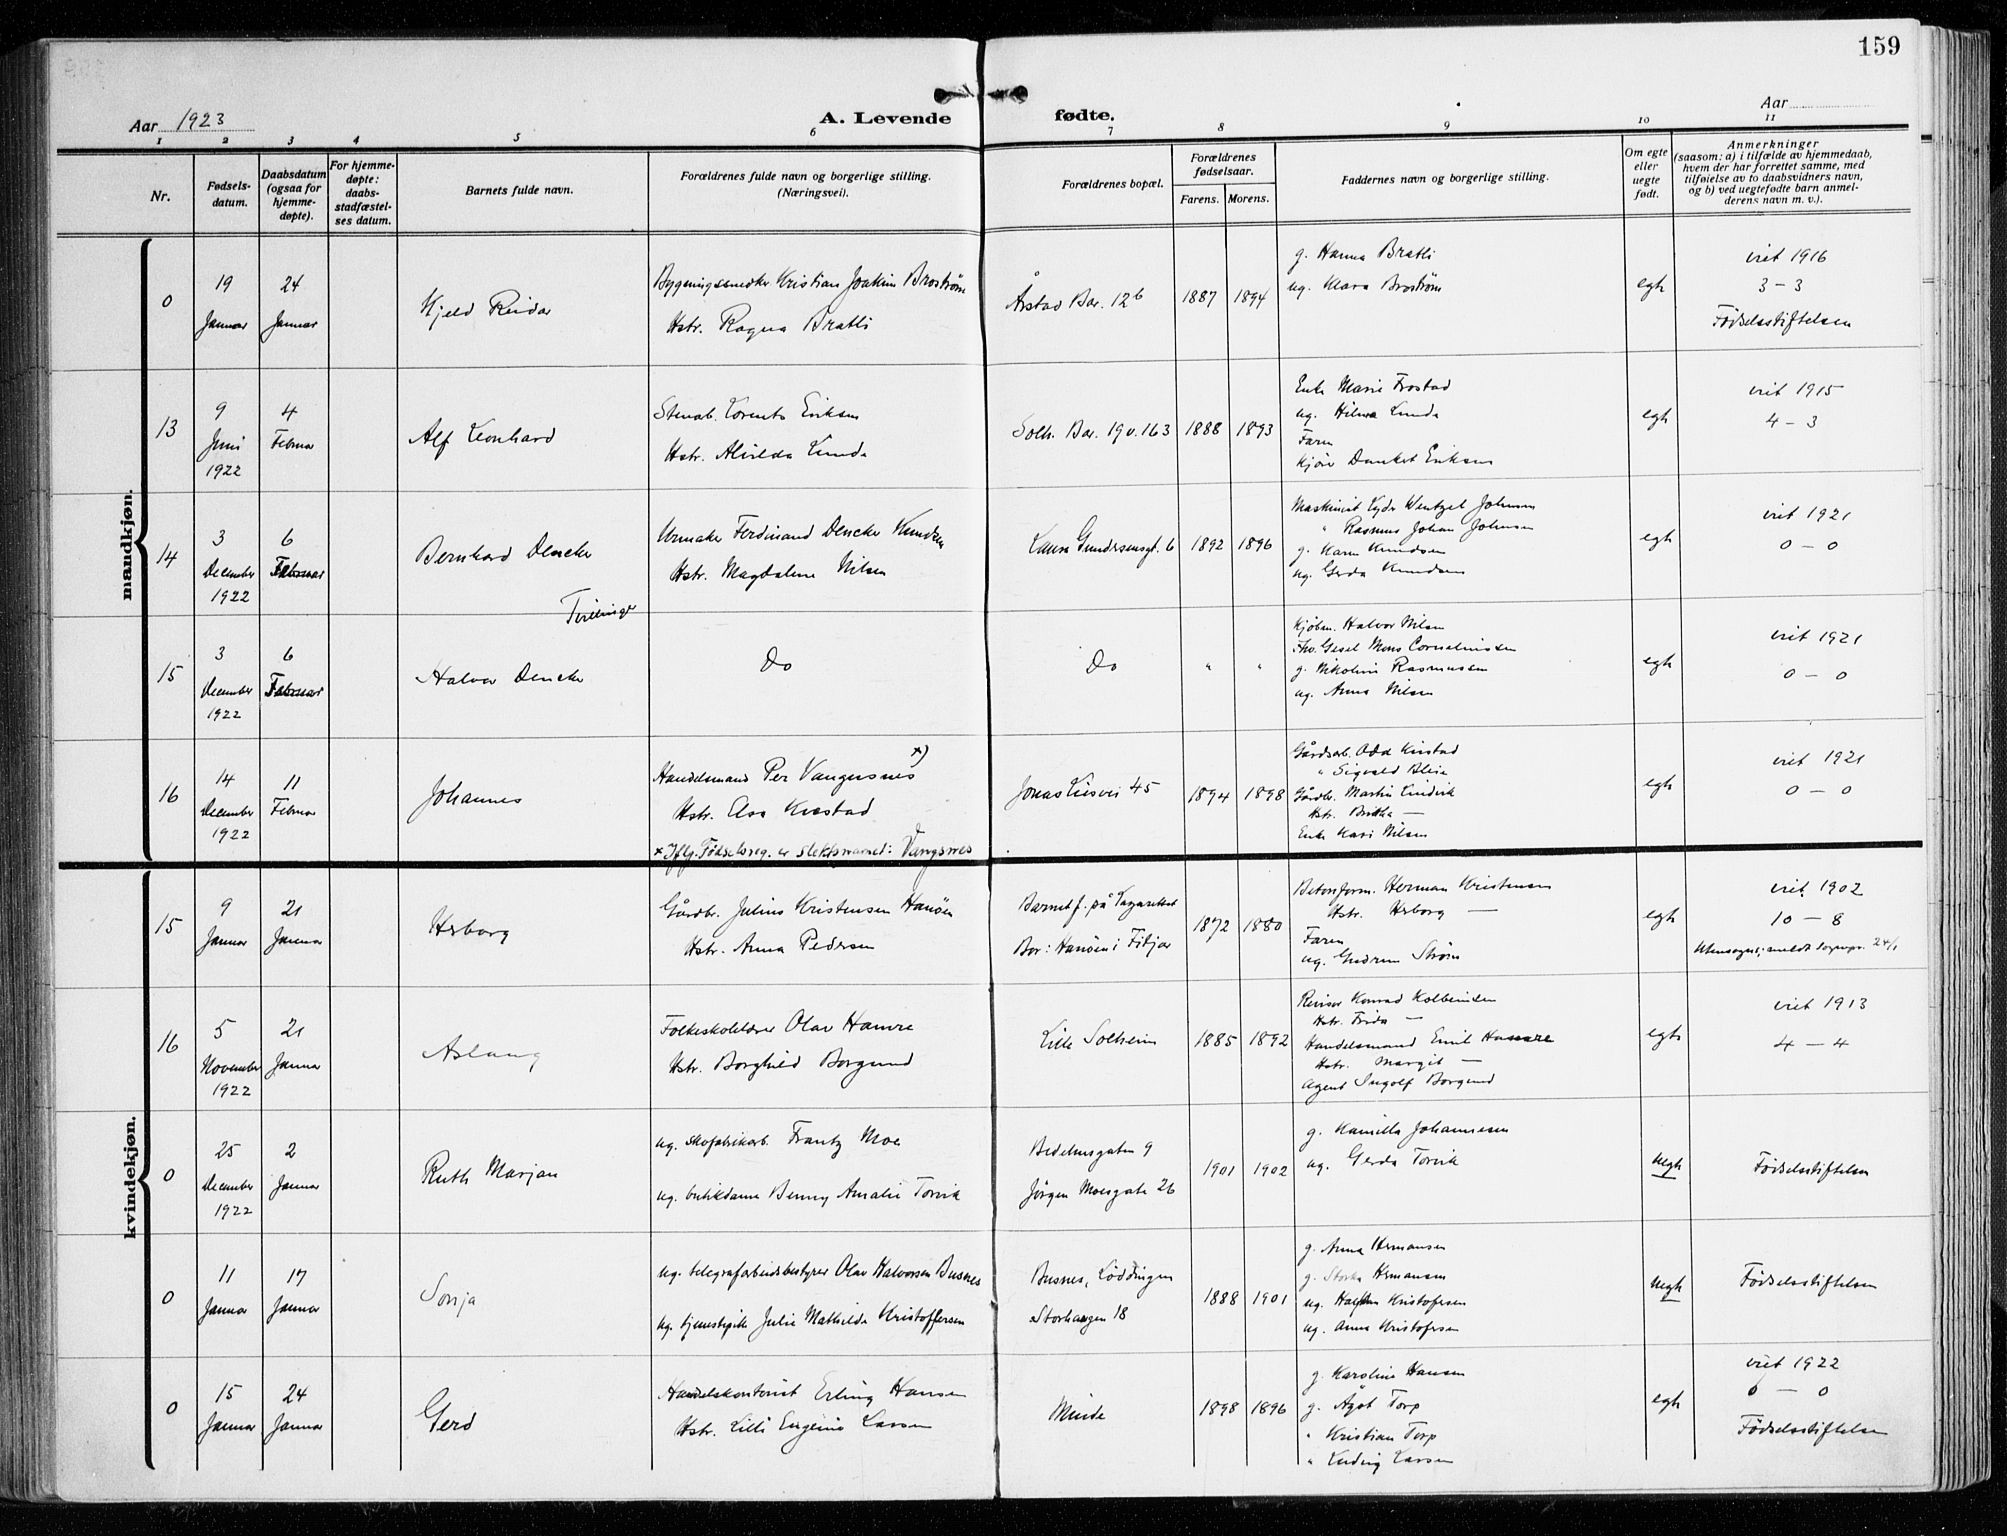 159
Aar 1923
A. Levende fødte.
Aar
1 2 3 4 5 6 7 8 9 10 11
Nr.
Fødsels-
datum.
Daabsdatum
(ogsaa for
hjemme-
døpte).
For hjemme-
døpte:
daabs-
stadfæstel-
ses datum.
Barnets fulde navn.
Forældrenes fulde navn og borgerlige stilling.
(Næringsvei).
Forældrenes bopæl.
Forældrenes
fødselsaar.
Farens. Morens.
Faddernes navn og borgerlige stilling.
Om egte
eller
uegte
født.
Anmerkninger
(saasom: a) i tilfælde av hjemmedaab,
hvem der har forrettet samme, med
tilføielse av to daabsvidners navn,
og b) ved uegtefødte barn anmel-
derens navn m. v.).
mandkjøn.
0
19
Januar
24
Januar
Kjeld Reidar
Bygningssnedker Kristian Joakim Broström
Hstr. Ragna Bratli
Årstad Bar. 12b
1887 1894
g. Hanna Bratli
ug. Klara Broström
egte
viet 1916
3 - 3
Fødselsstiftelsen
13
9
Juni
1922
4
Februar
Alf Leonhard
Stenarb. Lorents Eriksen
Hstr. Alvilda Lunde
Solh. Bar. 19 v. 163
1888 1893
Enke Marie Frostad
ug. Hilma Lunde
Faren
egte
viet 1915
4 - 3
14
3
December
1922
6
Februar
Bernhard Dencker
Urmaker Ferdinand Dencker Knudsen
Hstr. Magdalene Nilsen
Laura Gundersensgt. 6
1892 1896
Maskinist Wentzel Johnsen
" Rasmus Johan Johnsen
g. Karen Knudsen
ug. Gerda Knudsen
egte
viet 1921
0 - 0
Tvillinger
15
3
December
1922
6
Februar
Halvor Dencker
Do
Do
" "
Kjøbm. Halvor Nilsen
Mons Corneliussen
g. Nikoline Rasmussen
ug. Anna Nilsen
egte
viet 1921
0 - 0
16
14
December
1922
11
Februar
Johannes
Handelsmand Per Vangersnes x)
Hstr. Åsa Kvestad
x Iflg. Fødselsreg. er slektsnavnet: Vangsnes
Jonas Liesvei 45
1894 1898
Gårdsarb. Odd Kvestad
" Sigvald
Gårdbr. Martin
Hstr. Britha —
Enke Kari Nilsen
egte
viet 1921
0 - 0
kvindekjøn.
15
9
Januar
21
Januar
Herborg
Gårdbr. Julius Kristensen Hanøen
Hstr. Anna Pedersen
Barnet f. på Lazarettet
Bor: Hanøen i Fitjar
1872 1880
Betonform. Herman Kristensen
Hstr. Herborg —
Faren
ug. Gudrun Strøm
egte
viet 1902
10 - 8
Utensogns; meldt sognepr. 24/1
16
5
November
1922
21
Januar
Aslaug
Folkeskolelærer Olav Hamre
Hstr. Borghild Borgund
Lille Solheim
1885 1892
Revisor Konrad Kolbeinsen
Hstr. Frida —
Handelsmand Emil Hamre
Hstr. Margit —
Agent Ingolf Borgund
egte
viet 1913
4 - 4
0
25
December
1922
2
Januar
Ruth Marjan
ug. skofabrikarb. Frantz Moe
ug. butikdame Benny Amalie Torvik
Bedehusgaten 9
Jørgen Moesgate 26
1901 1902
g. Kamilla Johannesen
ug. Gerda Torvik
uegte
Fødselsstiftelsen
0
11
Januar
17
Januar
Sonja
ug. telegrafarbeidsbestyrer Olav Halvorsen Busnes
ug. tjenestepike Julie Mathilde Kristoffersen
Busnes, Løddingen
Storhaugen 18
1888 1901
g. Anna Hermansen
g. Hermansen
ug. Kristofersen
ug. Anna Kristofersen
uegte
Fødselsstiftelsen
0
15
Januar
24
Januar
Gerd
Handelskontorist Erling Hansen
Hstr. Lilli Eugenie Larsen
Minde
1898 1896
g. Karoline Hansen
g. Ågot Torp
" Kristian Torp
" Ludvig Larsen
egte
viet 1922
0 - 0
Fødselsstiftelsen